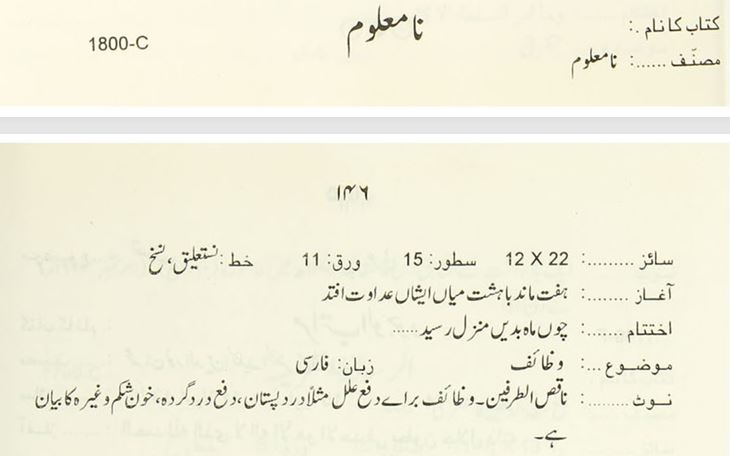 کتاب کا نام .: نامعلوم 1800-C
مصنّف ......: نامعلوم
۱۴۶
سائز .........: 12 X 22 سطور: 15 ورق: 11 خط: نستعلیق، نسخ
آغاز ........: ہفت ماند باہشت میاں ایشاں عداوت افتد
اختتام .......: چوں ماہ بدیں منزل رسید......
موضوع ...: وظائف زبان: فارسی
نوٹ .........: ناقص الطرفین۔ وظائف براے دفع علل مثلاً درد پستان، دفع درد گردہ، خون شکم وغیرہ کا بیان
ہے۔